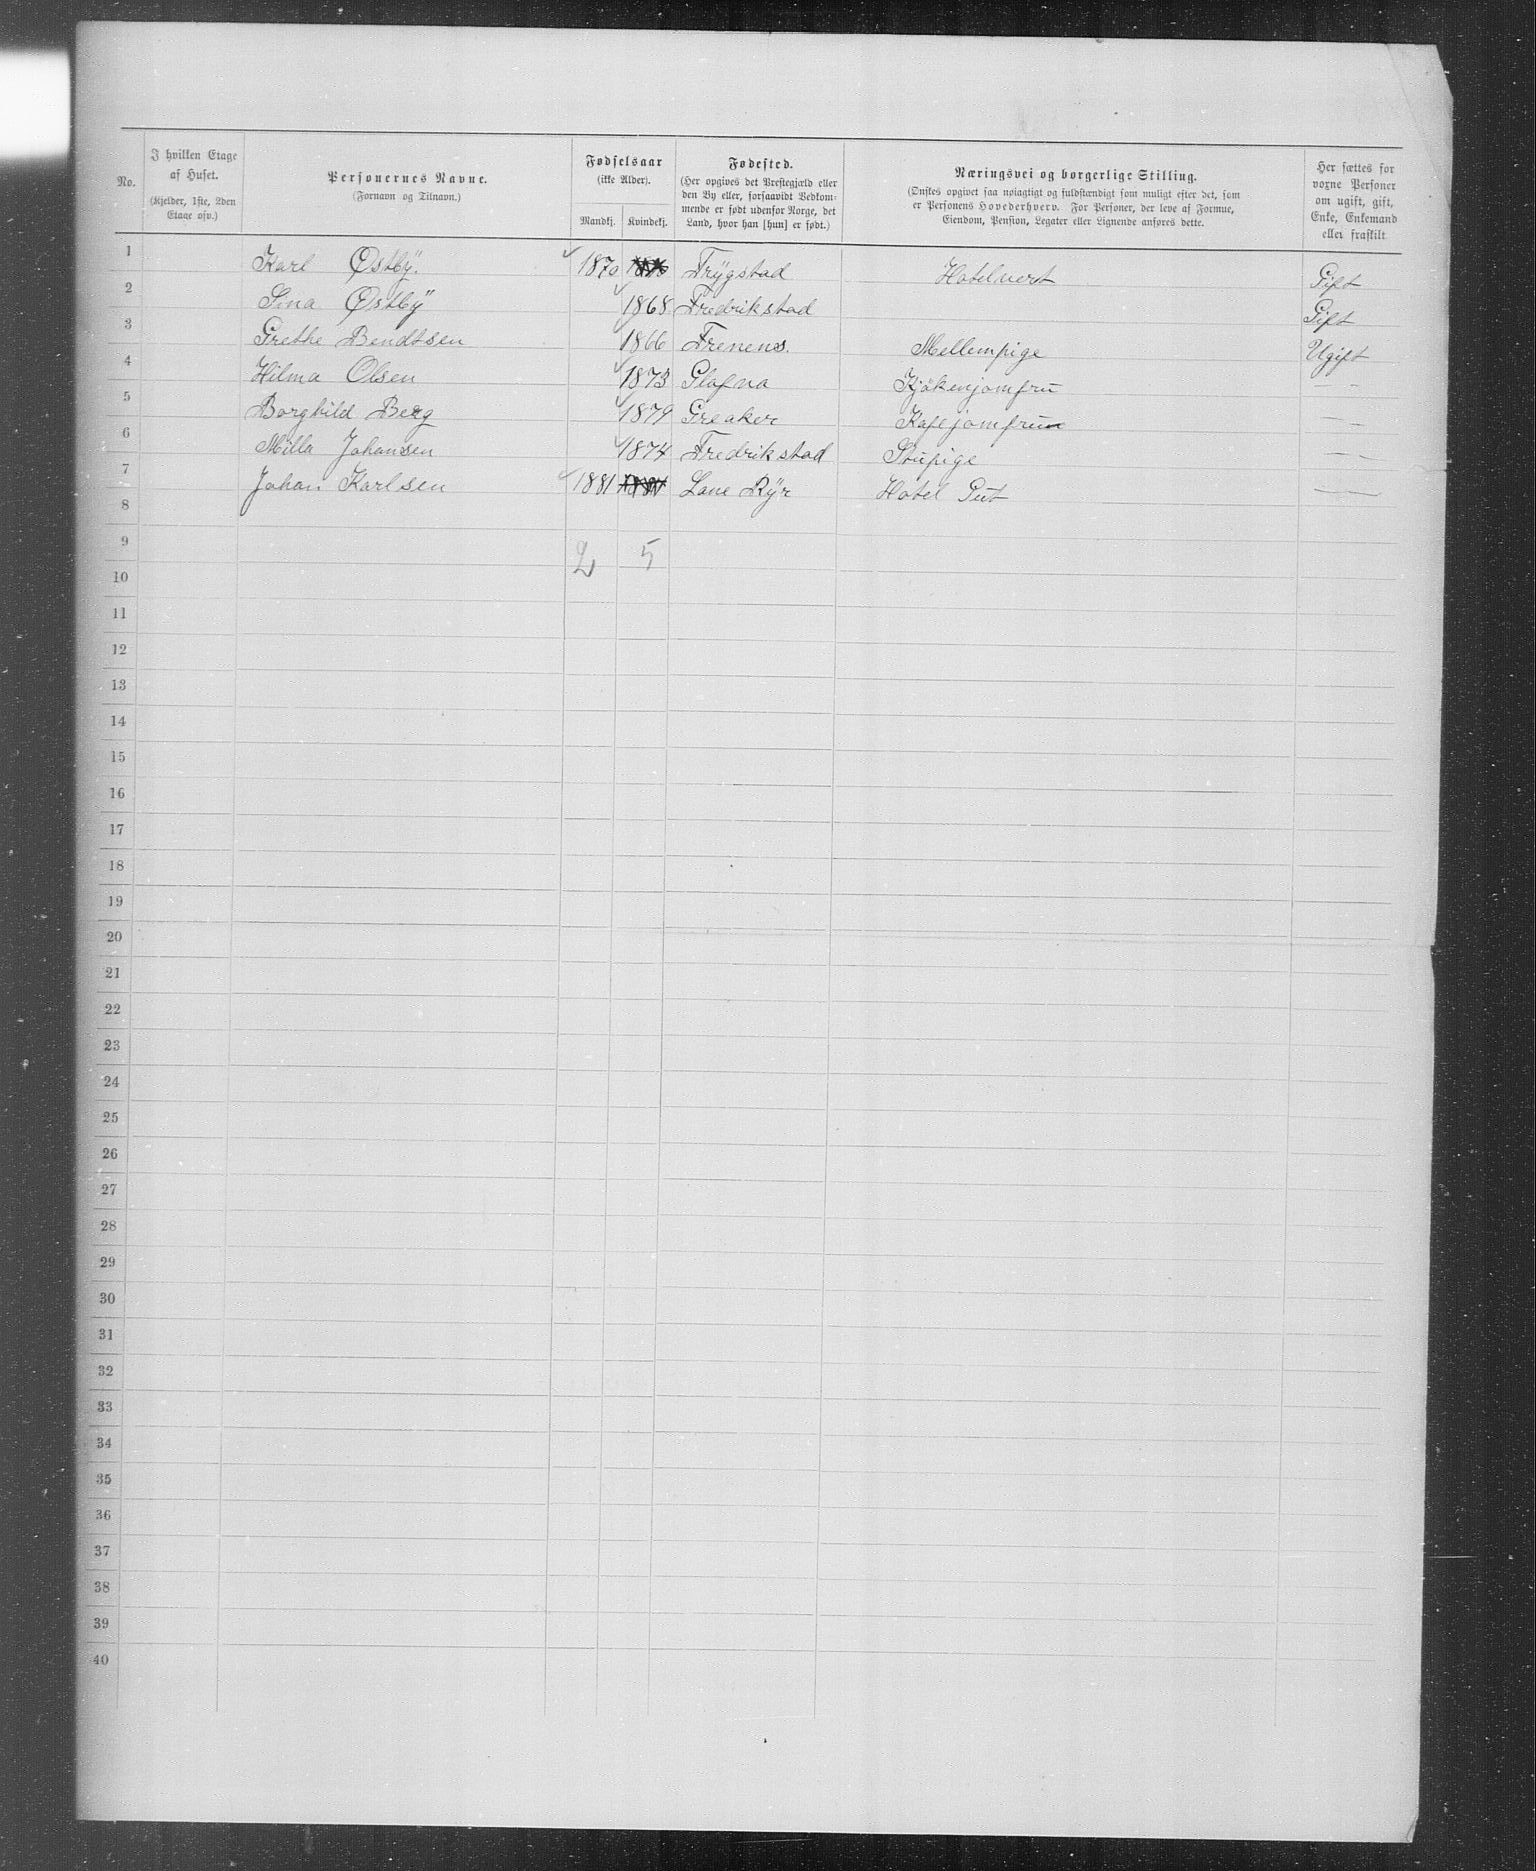 No.
I hvilken Etage af Huset.
(Kjelder, 1ste, 2den Etage osv.)
Personernes Navne.
(Fornavn og Tilnavn.)
Fødselsaar
(ikke Alder).
Mandkj. Kvindekj.
Fødested.
(Her opgives det Prestegjæld eller
den By eller, forsaavidt Vedkom-
mende er født udenfor Norge, det
Land, hvor han [hun] er født.)
Næringsvei og borgerlige Stilling.
(Ønskes opgivet saa nøiagtigt og fuldstændigt som muligt efter det, som
er Personens Hovederhverv. For Personer, der leve af Formue,
Eiendom, Pension, Legater eller Lignende anføres dette.
Her sættes for
voxne Personer
om ugift, gift,
Enke, Enkemand
eller fraskilt
1 Karl Østbÿ. 1870 Trÿgstad Hotelvert Gift
2 Sina Østbÿ 1868 Fredrikstad Gift
3 Grethe Bendtsen 1866 Mellempige Ugift
4 Hilma Olsen 1873 Kjökenjomfru — —
5 Borghild Berg 1879 Greaker Kafejomfru —
6 Milla Johansen 1874 Fredrikstad Stupige — —
7 Johan Karlsen 1881 Rÿr Hotel Gut —
8
9
2 5
10
11
12
13
14
15
16
17
18
19
20
21
22
23
24
25
26
27
28
29
30
31
32
33
34
35
36
37
38
39
40